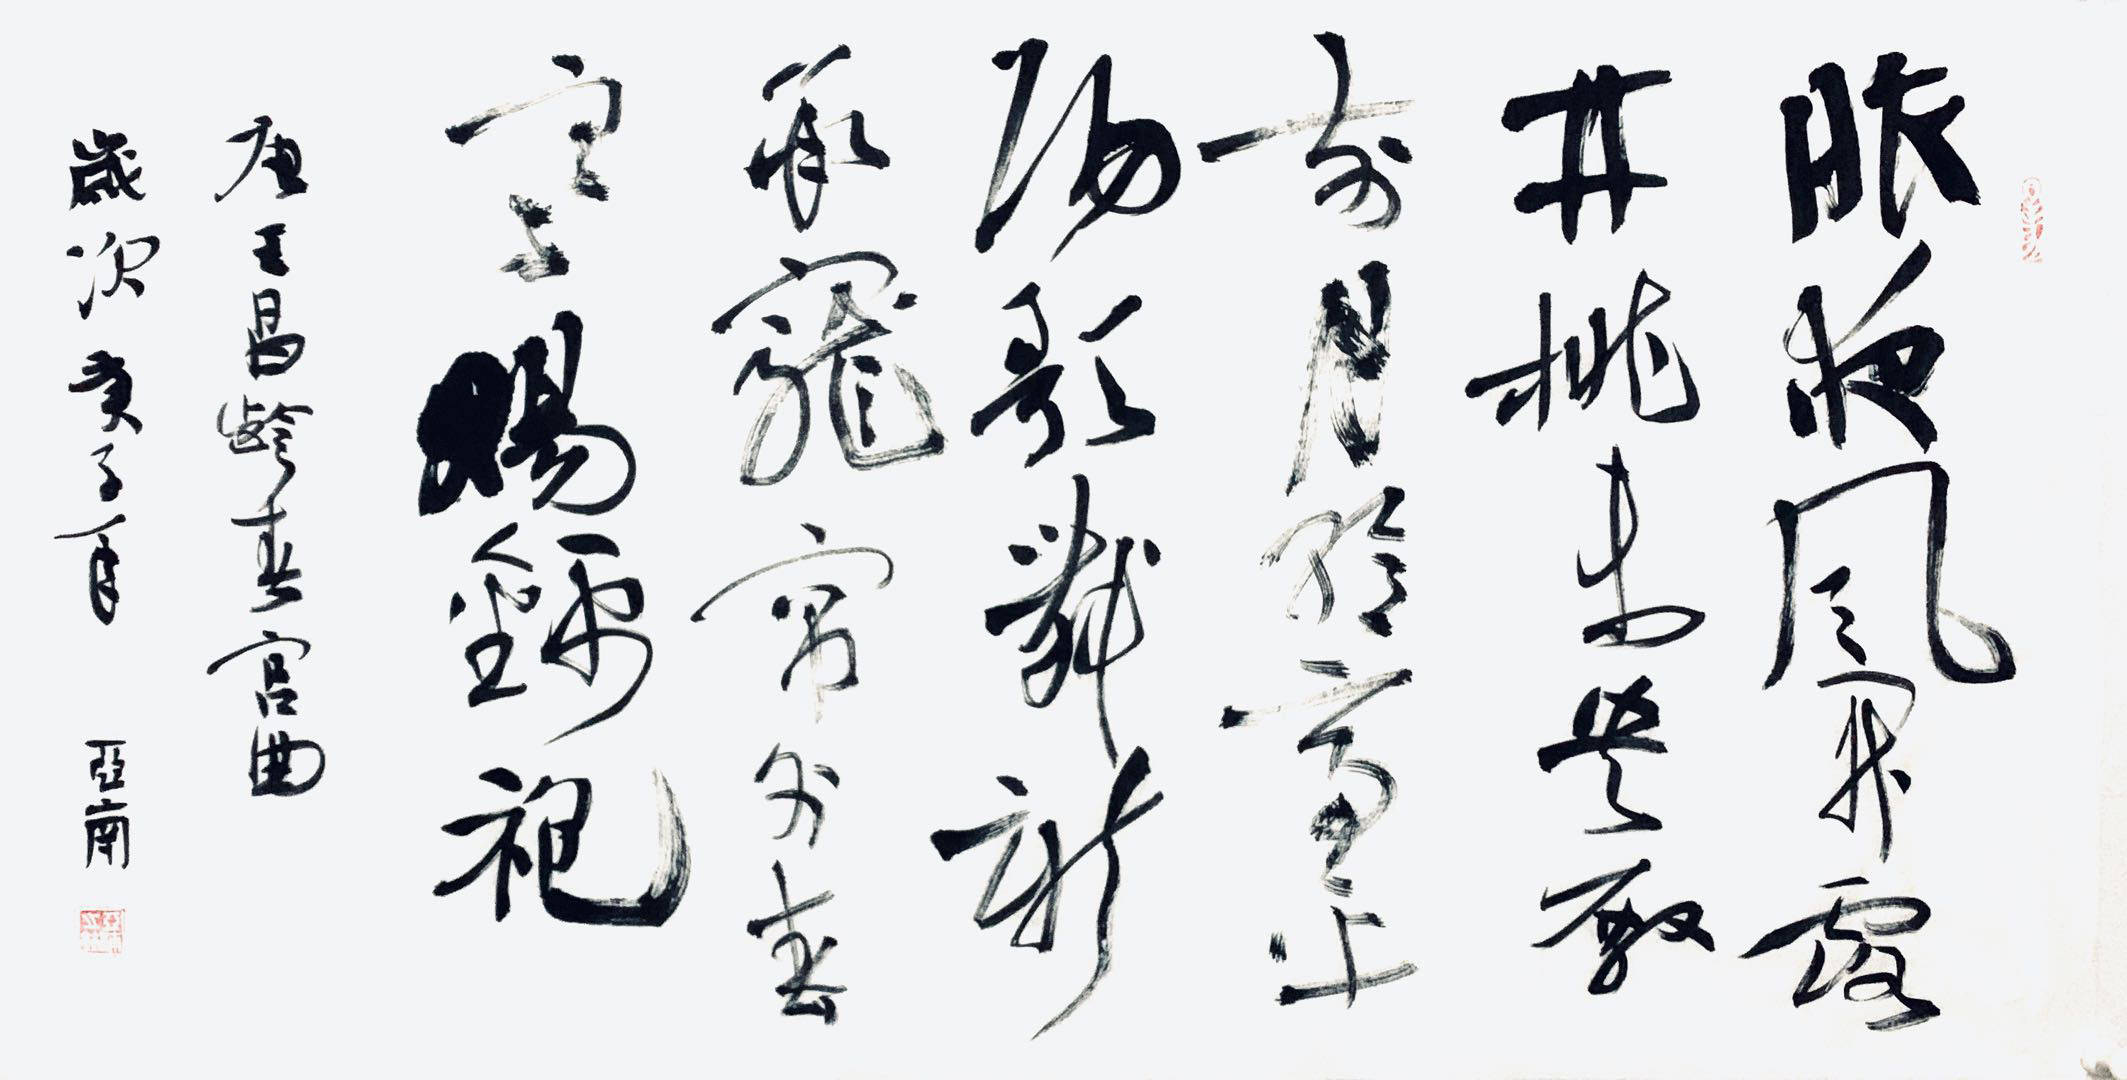 昨夜風開露
井桃未央殿
前月輪高平
陽歌舞新
承寵帘外春
寒賜錦袍
唐王昌齡春宮曲
歲次庚子年 亞南